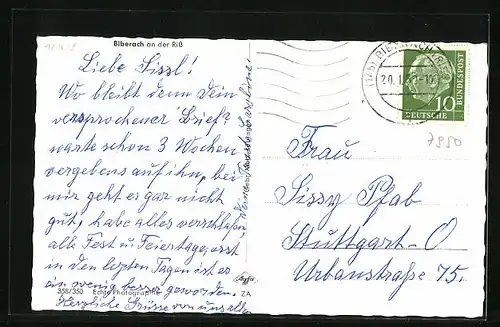 Biberach an der Riß
Liebe Sissl!
Wo bleibt denn Dein
versprochener Brief?
warte schon 3 Wochen
vergebens auf ihn, bei
mir geht es gar nicht
gut, habe alles verschlafen
alle Fest u. Feiertage, erst
in den letzten Tagen ist es
ein wenig besser geworden.
Herzliche Grüsse von uns allen
358/350 Echte Photographie
Agfa
ZA
20.1.
10
DEUTSCHE
BUNDESPOST
7950
Frau
Sissy Pfab
Stuttgart-O
Urbanstraße 75.